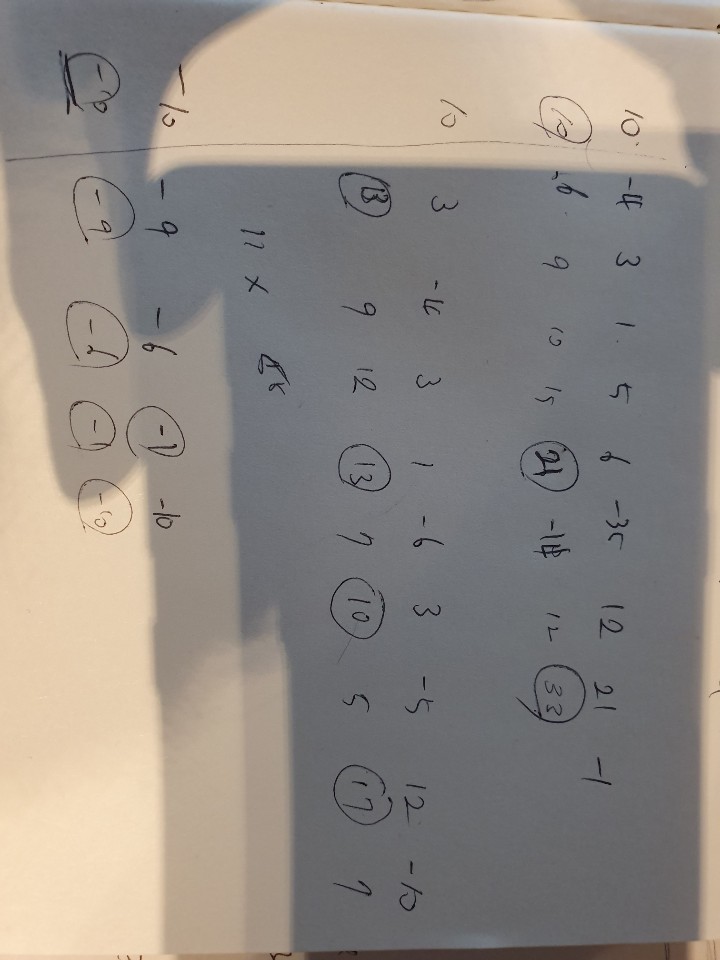 10 -4 3 1 5 6 -35 12 21 -1
10 6 9 10 15 21 -14 12 33
10 3 -4 3 1 -6 3 -5 12 -10
13 9 12 13 7 10 5 17 7
17 x
-10 -9 -6 -1 -10
-10 -9 -1 -10